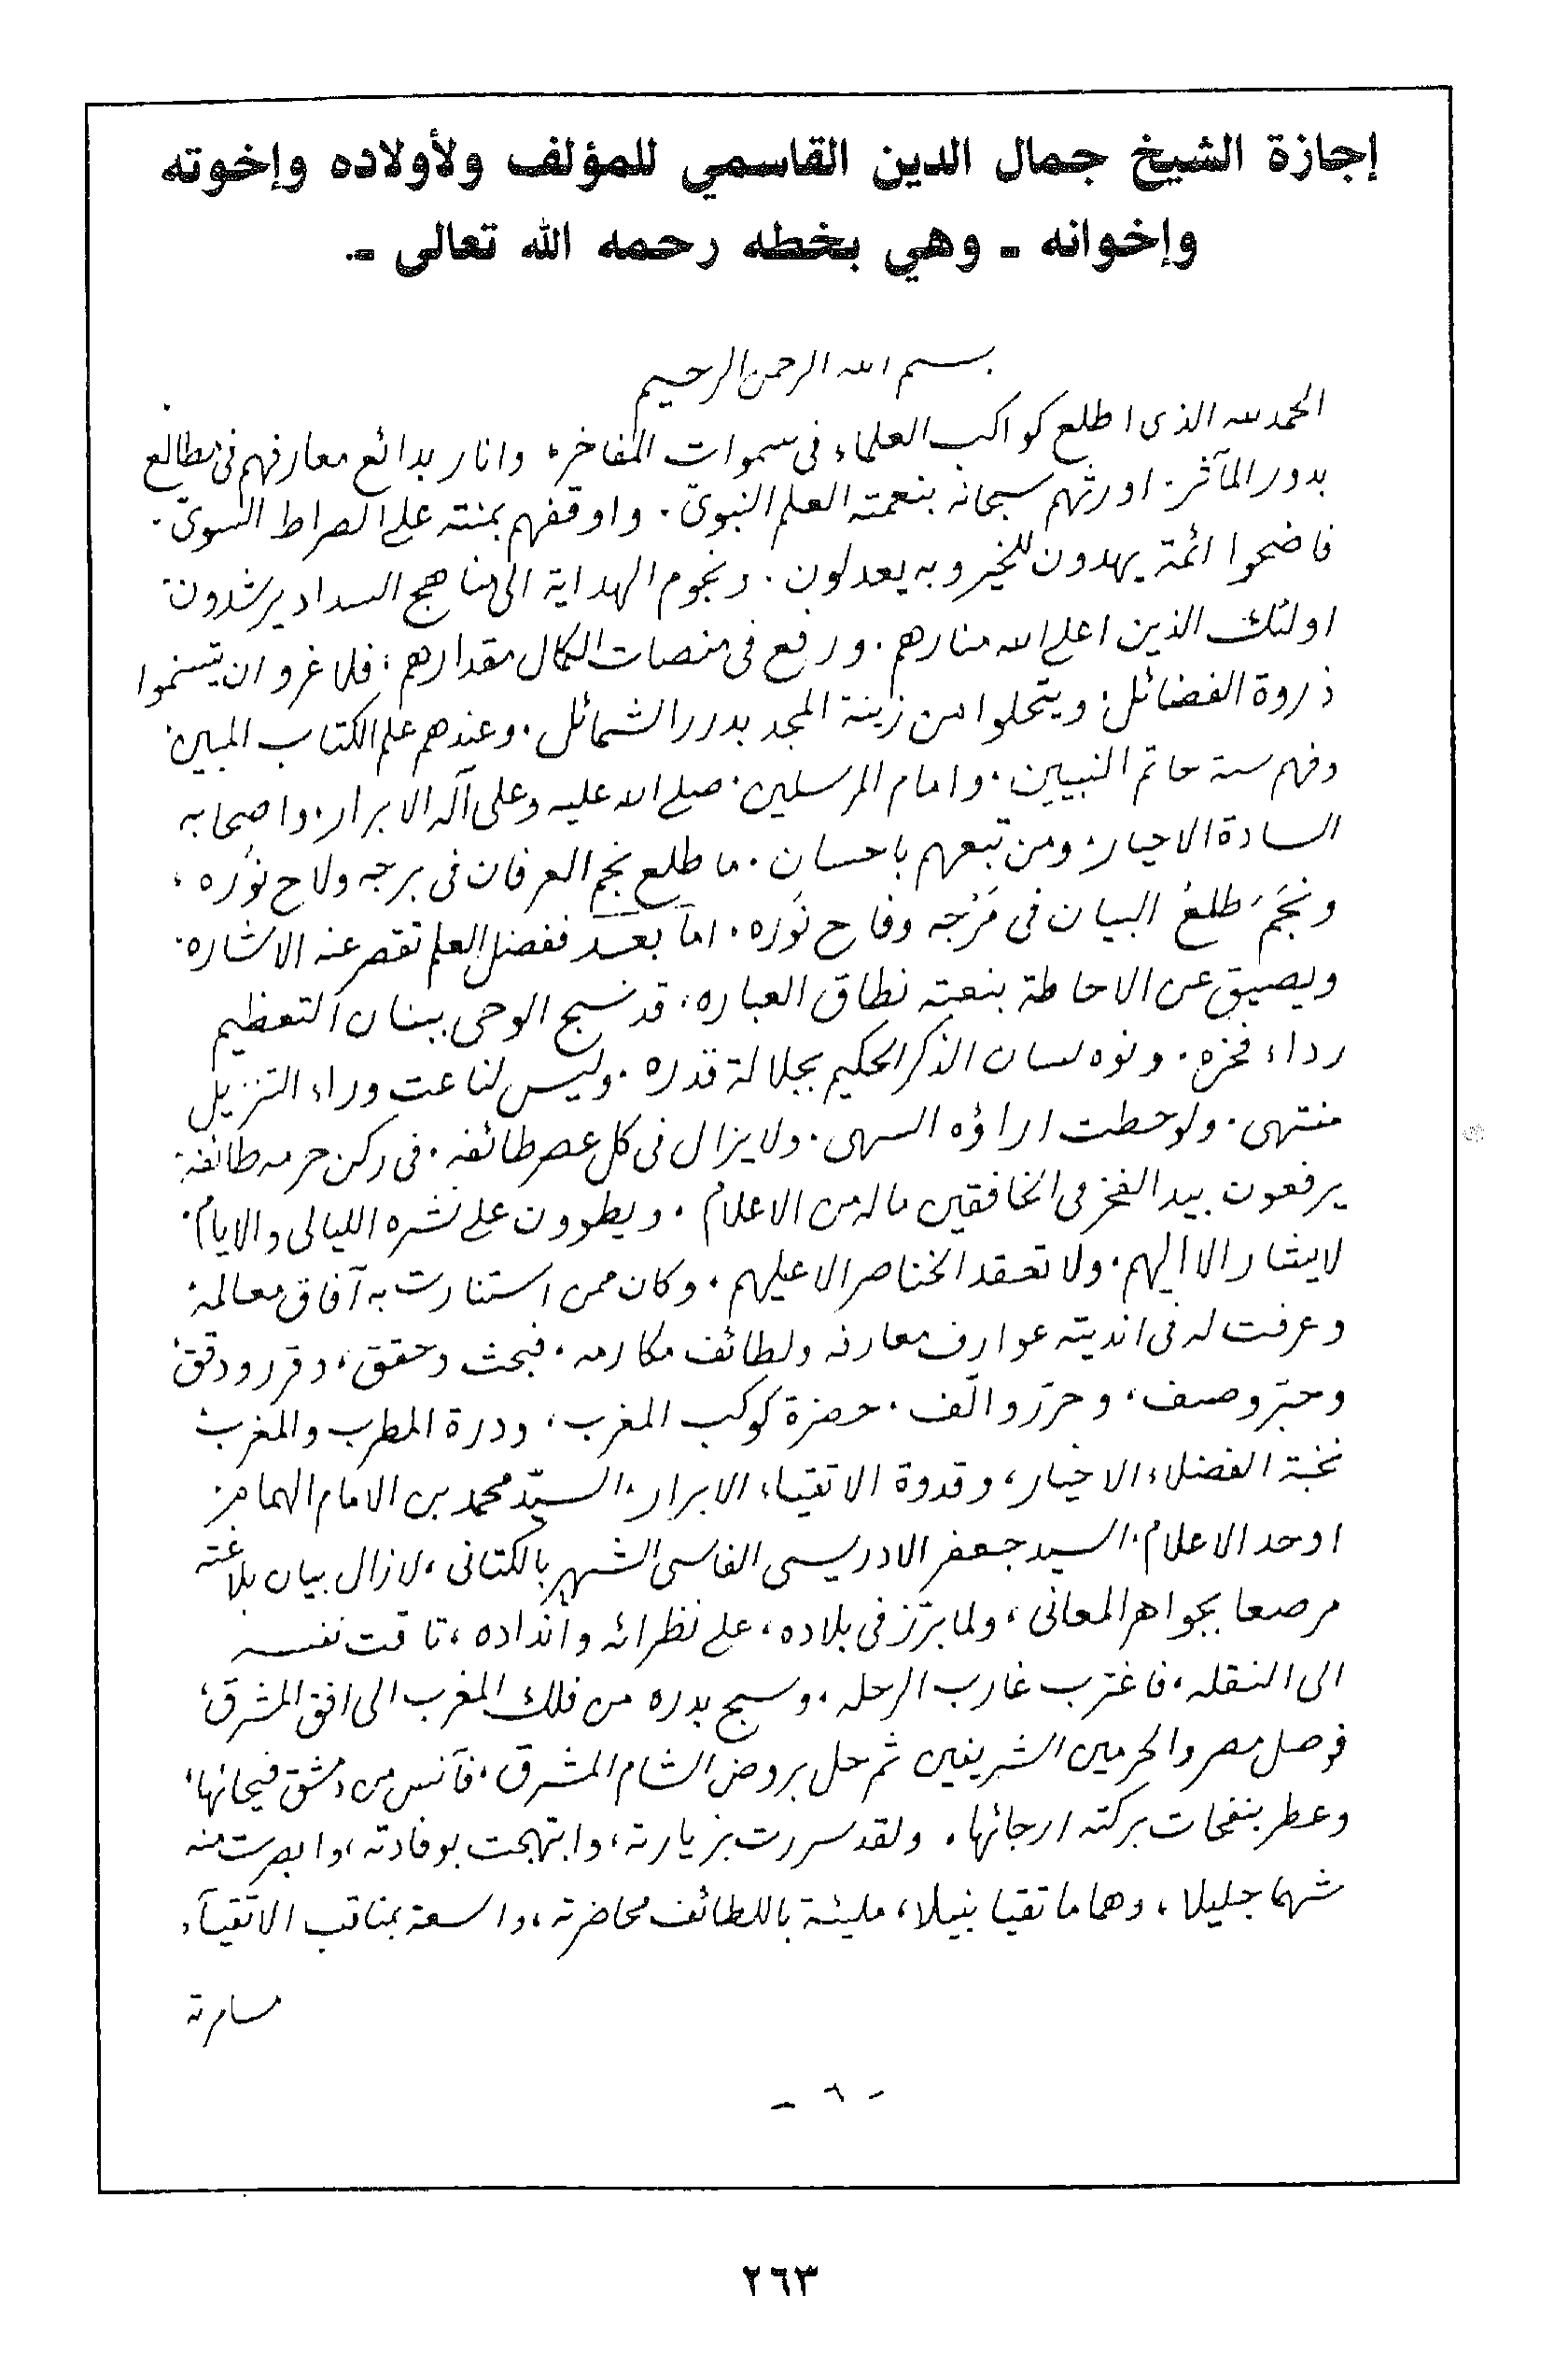 إجازة الشيخ جمال الدين القاسمي للمؤلف ولأولاده وإخوته
وإخوانه - وهي بخطه رحمه الله تعالى -.
بسم الله الرحمن الرحيم
الحمد لله الذى اطلع كواكب العلماء فى سموات المفاخر، وانار بدائع معارفهم فى مطالع
بدور المآثر. اورثهم سبحانه بنعمته العلم النبوىّ. واوقفهم بمنته على الصراط السوىّ.
فاضحوا ائمة يهدون للخير وبه يعدلون. ونجوم الهداية الى مناهج السداد يرشدون.
اولئك الذين اعلى الله منارهم. ورفع فى منصات الكمال مقدارهم، فلا غرو ان يتسنموا
ذروة الفضائل. ويتحلوا من زينة المجد بدرر الشمائل. وعندهم علم الكتاب المبين.
وفهم سنة خاتم النبيين. وامام المرسلين. صلى الله عليه وعلى آله الابرار. واصحابه
السادة الاخيار. ومن تبعهم باحسان. ما طلع نجم العرفان فى برجه ولاح نوره،
ونجَمَ طلعُ البيان فى مَرْجه وفاح نَوره. اما بعد ففضل العلم تقصر عنه الاشاره.
ويضيق عن الاحاطة بنعته نطاق العباره، قد نسج الوحى ببنان التعظيم
رداء فخره. ونوه لسان الذكر الحكيم بجلالة قدره. وليس لناعت وراء التنزيل
منتهى. ولو حطت اراؤه السهى. ولا يزال فى كل عصر طائفه. فى ركن حرمه طائفة.
يرفعون بيد الفخر فى الخافقين ما له من الاعلام. ويطوون على نشره الليالى والايام.
لا يشار الا اليهم. ولا تعقد الخناصر الا عليهم. وكان ممن استنارت به آفاق معالمه.
وعرفت له فى انديته عوارف معارفه ولطائف مكارمه. فبحث وحقق، وقرر ودقق،
وحبّر وصنف، وحرّر والّف. حضرة كوكب المغرب، ودرة المطرب والمغرب.
نخبة الفضلاء الاخيار، وقدوة الاتقياء الابرار. السيّد محمد بن الامام الهمام.
اوحد الاعلام. السيد جعفر الادريسى الفاسى الشهير بالكتانى، لا زال بيان بلاغته
مرصعا بجواهر المعانى، ولما برّز فى بلاده، على نظرائه وانداده، تاقت نفسه
الى النقله، فاغترب غارب الرحله، وسبح بدره من فلك المغرب الى افق المشرق،
فوصل مصر والحرمين الشريفين ثم حل بروض الشام المشرق، فآنس من دمشق فيحائها،
وعطر بنفحات بركته ارجائها. ولقد سررت بزيارته، وابتهجت بوفادته، وابصرت منه
شهما جليلا، وهماما تقيا نبيلا، مليئة باللطائف محاضرته، واسعة بمناقب الاتقيآء
مسامرته
- ٦ -
٢٦٣